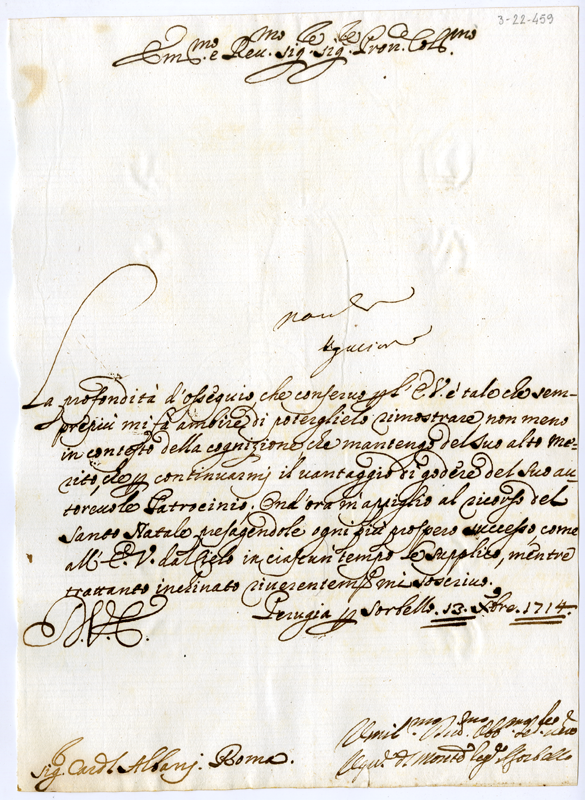 3-22-459
Em.mo e Reu.mo Sig.re Sig.re Pron. Col.mo
La profondità d'ossequio, che conseruo p l'E.V. è tale che sem-
prepiù mi fà ambire, di poterglielo rimostrare, non meno
in contesto della cognizione, che mantengo del suo alto me-
rito, che p continuarmj il uantaggio di godere del suo au-
toreuole Patrocinio. Ond'ora m'appiglio al ricorso del
Santo Natale, presagendole ogni più prospero successo, come
all'E.V. dal Cielo in ciascun tempo le supplico, mentre
trattanto inclinato riuerentem.te mi soscriuo.
Perugia p Sorbello. 13. Xbre. 1714.
D.V.E.
Umil.mo Diu.mo Obb.mo
Sig. Card.l Albanj. Roma.